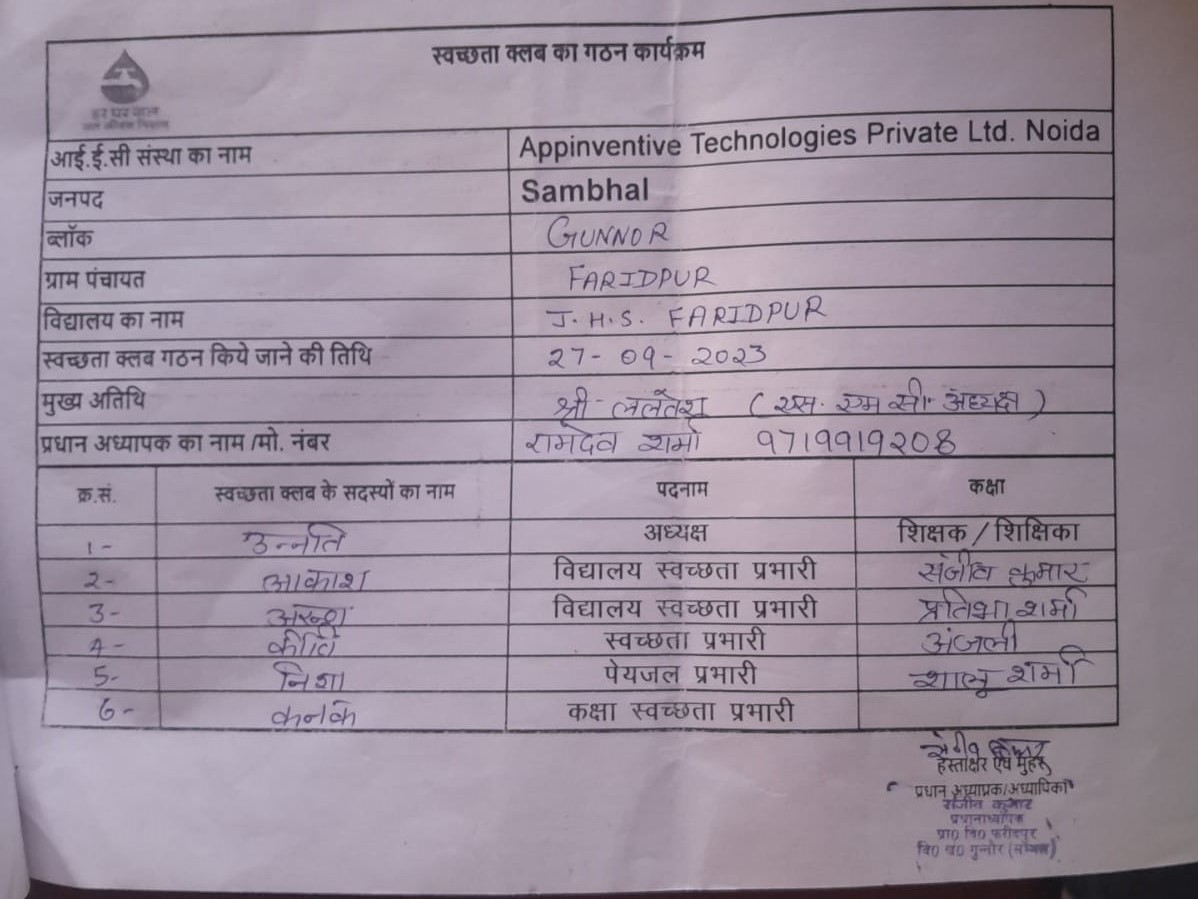 स्वच्छता क्लब का गठन कार्यक्रम
हर घर जल
जल जीवन मिशन
आई.ई.सी संस्था का नाम Appinventive Technologies Private Ltd. Noida
जनपद Sambhal
ब्लॉक GUNNOR
ग्राम पंचायत FARIDPUR
विद्यालय का नाम J.H.S. FARIDPUR
स्वच्छता क्लब गठन किये जाने की तिथि 27-09-2023
मुख्य अतिथि श्री ललतेश (एस. एम सी. अध्यक्ष)
प्रधान अध्यापक का नाम /मो. नंबर रामदेव शर्मा 9719919208
क्र.सं. स्वच्छता क्लब के सदस्यों का नाम पदनाम कक्षा
1- उन्नति अध्यक्ष शिक्षक / शिक्षिका
2- आकाश विद्यालय स्वच्छता प्रभारी संजीव कुमार
3- विद्यालय स्वच्छता प्रभारी प्रतिभा शर्मा
4- कीर्ति स्वच्छता प्रभारी अंजली
5- निशा पेयजल प्रभारी शालू शर्मा
6- कनक कक्षा स्वच्छता प्रभारी
हस्ताक्षर एंव मुहर
प्रधान अध्यापक/अध्यापिका
संजीव कुमार
प्रधानाध्यापक
प्रा० वि० फरीदपुर
वि० ख० गुन्नौर (सम्भल)